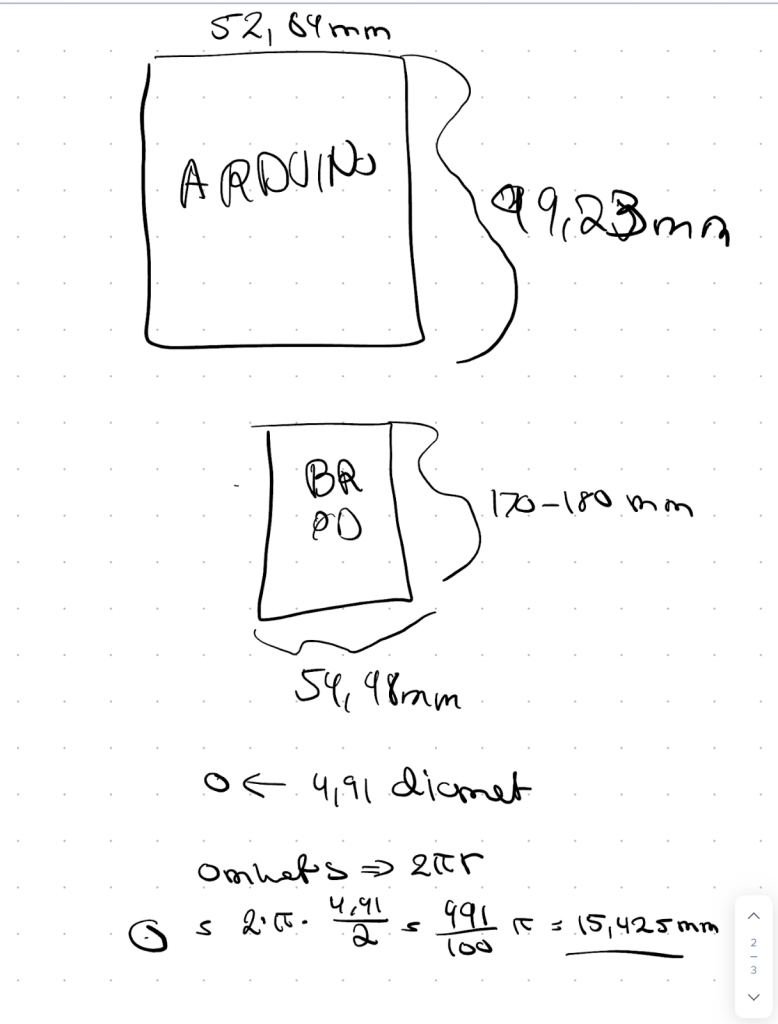 52,64mm
ARDUINO
99,23mm
BR
PD
170-180 mm
54,48mm
O ← 4,91 diamet
Omkets => 2πr
O = 2·π· 4,91/2 = 491/100 π = 15,425mm
2
3